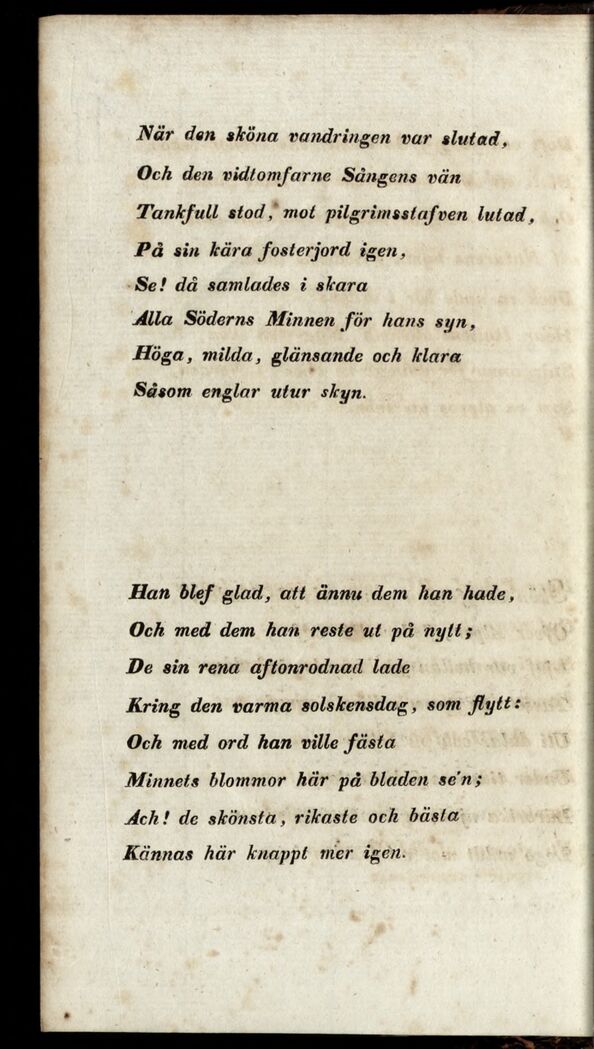 När den sköna vandringen var slutad,
Och den vidtomfarne Sångens vän
Tankfull stod, mot pilgrimsstafven lutad,
På sin kära fosterjord igen,
Se! då samlades i skara
Alla Söderns Minnen för hans syn,
Höga, milda, glänsande och klara
Såsom englar utur skyn.
Han blef glad, att ännu dem han hade,
Och med dem han reste ut på nytt;
De sin rena aftonrodnad lade
Kring den varma solskensdag, som flytt:
Och med ord han ville fästa
Minnets blommor här på bladen se'n;
Ach! de skönsta, rikaste och bästa
Kännas här knappt mer igen.